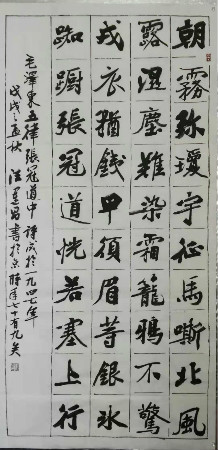 朝霧弥瓊宇征馬嘶北風
露濕塵難染霜籠鴉不驚
戎衣猶鐵甲須眉等銀冰
踟躕張冠道恍若塞上行
毛澤東五律張冠道中 詩成於一九四七年
戊戌之孟秋 汪 書於京時年七十有九矣